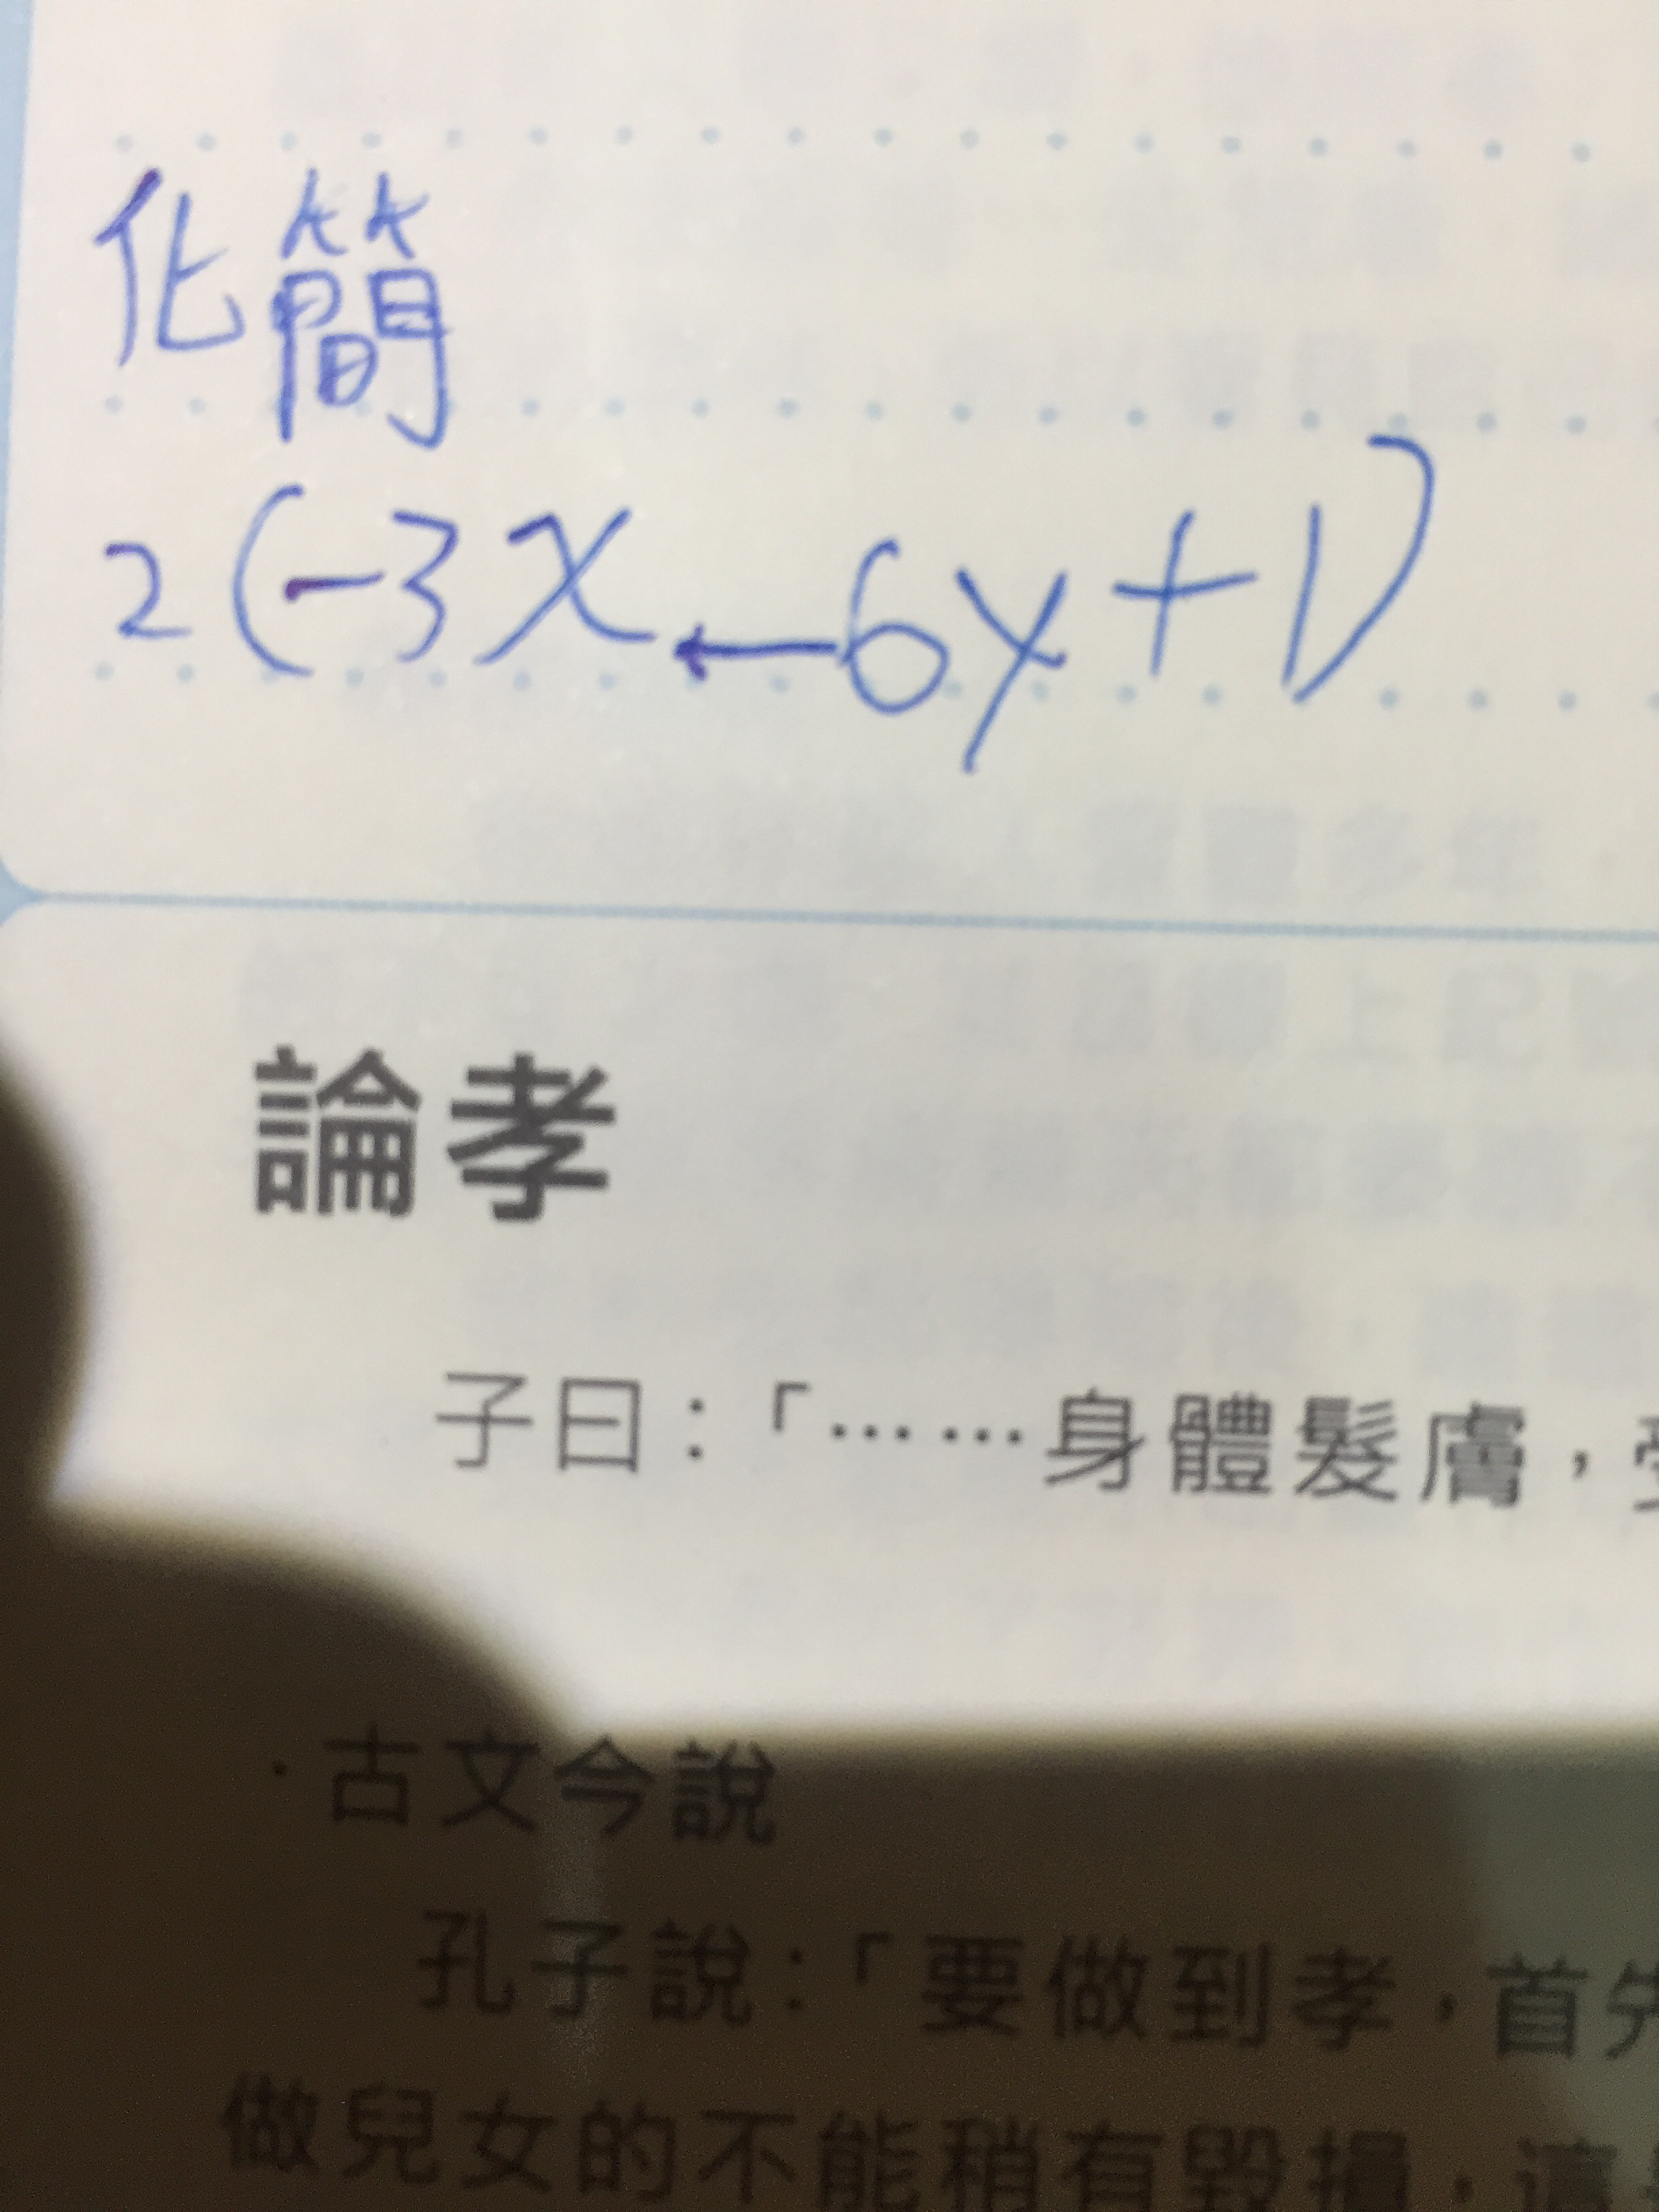 化簡
2(-3x-6y+1)
論孝
子曰：「……身體髮膚，
·古文今說
孔子說：「要做到孝，首先
做兒女的不能稍有毀損，這